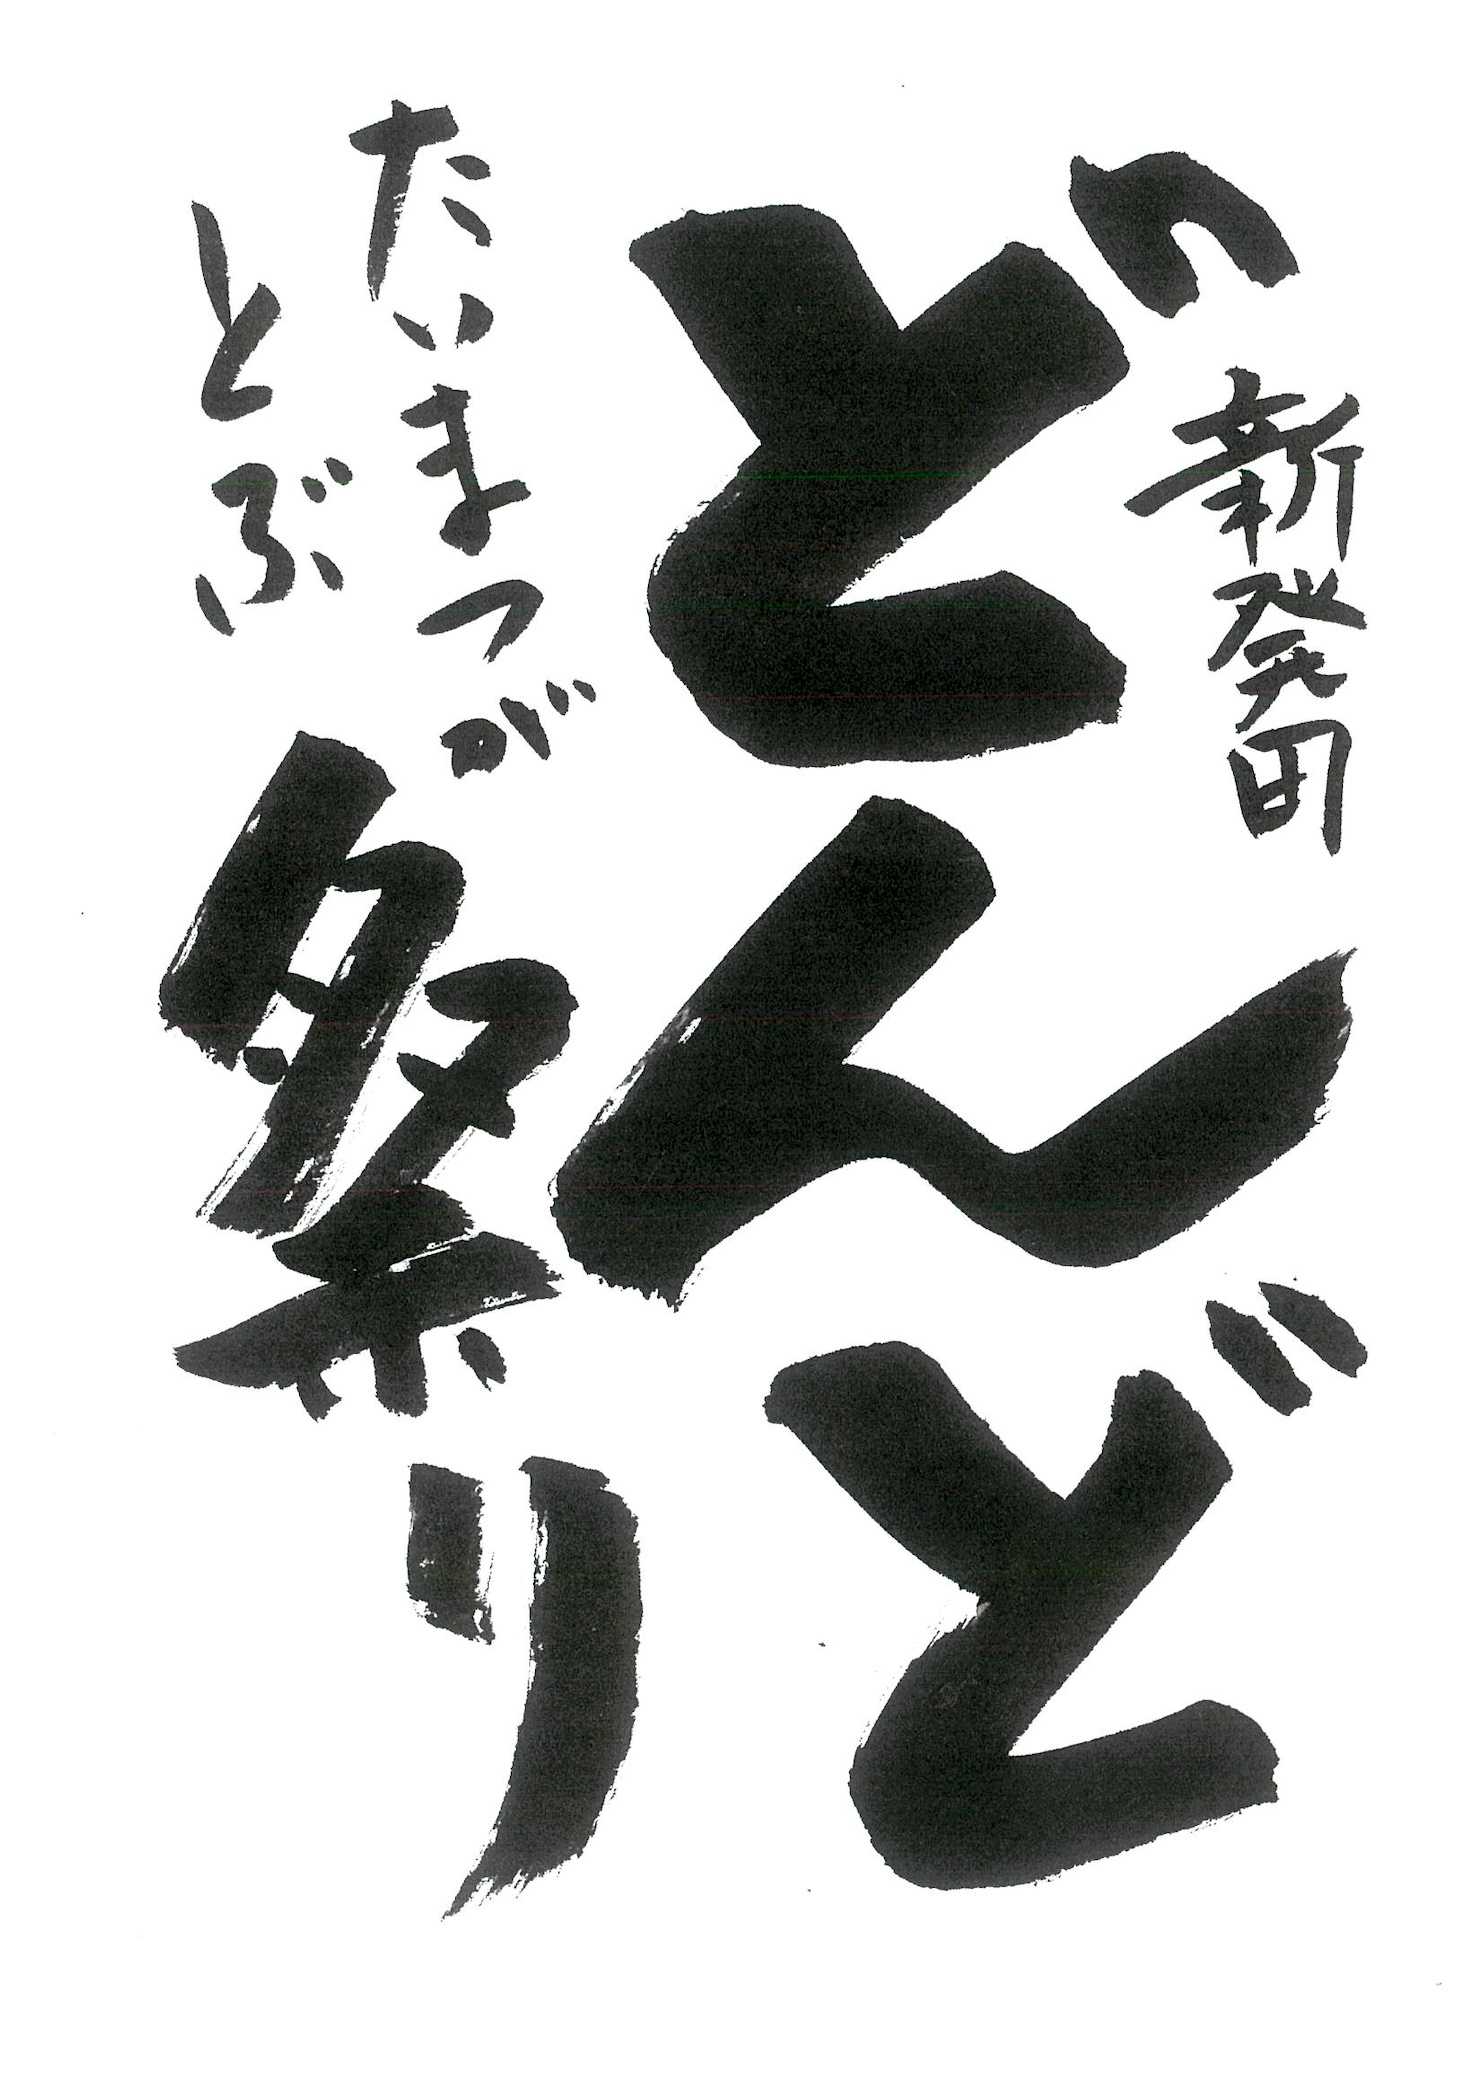 新発田
どんど
たいまつが
とぶ
祭り